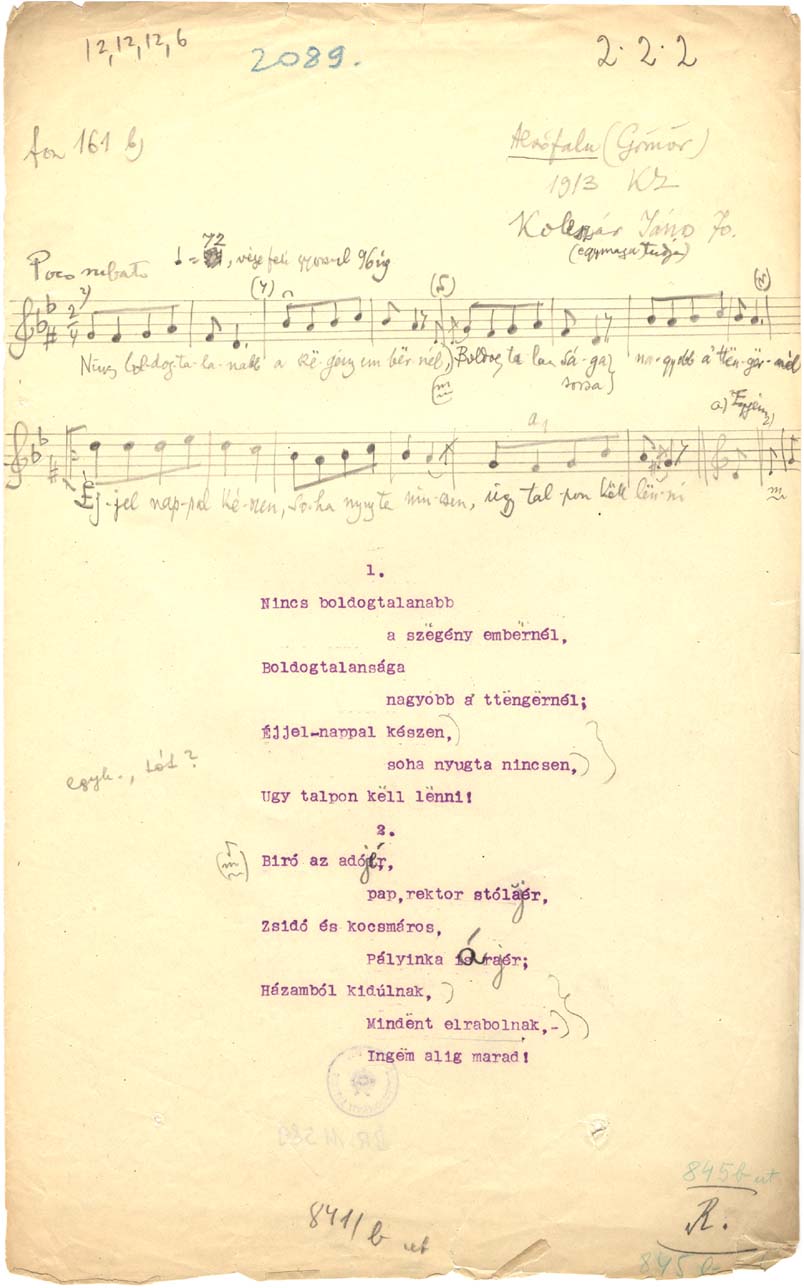 12,12,12,6
2089.
2·2·2
fon 161 b)
Alsófalu (Gömör)
1913 KZ
János 70.
(egymaga tudja)
Poco rubato
♩= 72, vége felé gyorsul 96ig
2) 2/4 (4) (5) (N)
Nincs boldogta-la-nabb a szë-gény em-bër-nél, Boldog ta lan sá-ga na-gyobb a' ttën-gër-nél
sorsa
a) 2)
a1
Éj-jel nap-pal ké-szen, so-ha nyugta nin-csen, úgy tal-pon këll lën-ni
1.
Nincs boldogtalanabb
a szëgény embërnél,
Boldogtalansága
nagyobb a' ttëngërnél;
Éjjel-nappal készen,)
soha nyugta nincsen,)
egyh., tót?
Ugy talpon këll lënni!
2.
Biró az adójér,
pap,rektor stólájér,
Zsidó és kocsmáros,
Pályinka árajér;
Házamból kidúlnak,)
Mindënt elrabolnak,-)
Ingëm alig marad!
845b ut
R.
841/b ut
845 a